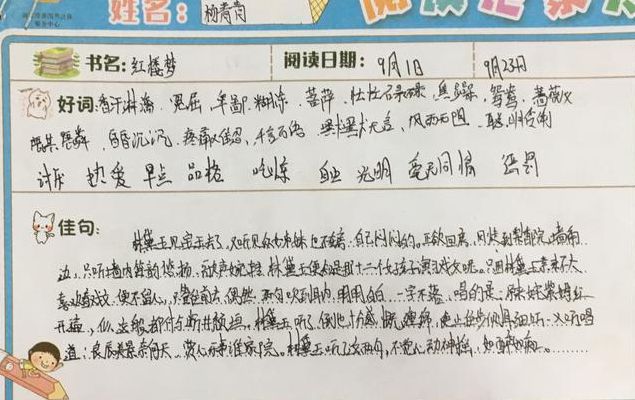 姓名：杨青青
阅读记录
书名：红楼梦 阅读日期：9月1日 9月23日
好词：香汗淋漓、冤屈、糊涂、菩萨、忙忙碌碌、焦躁、鸳鸯、蔷薇
昏沉沉、疼、千言万语、默默无言、风雨
讨厌 热爱 早点 品格 吃炼 自由 光明 毫无同情 惩罚
佳句：
林黛玉见宝玉去了，又听见众姊妹也不在房，自己闷闷的。正欲回房，刚走到梨香院墙角
边，只听墙内笛韵悠扬，歌声婉转，林黛玉便知是那十二个女孩子演习戏文呢。只因林黛玉素来不大
喜欢看戏，便不留心，只管往前走，偶然两句吹到耳内，明明白白，一字不落，唱的是：原来姹紫嫣红
开遍，似这般都付与断井颓垣。林黛玉听了，倒也十分感慨缠绵，便止住步侧耳细听，又听唱
道：良辰美景奈何天，赏心乐事谁家院。林黛玉听了这两句，不觉心动神摇，如醉如痴……